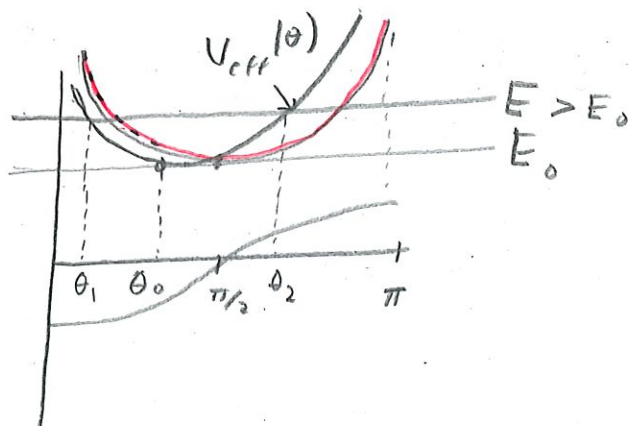 V_eff(θ)
E > E_0
E_0
θ_1 θ_0 π/2 θ_2 π